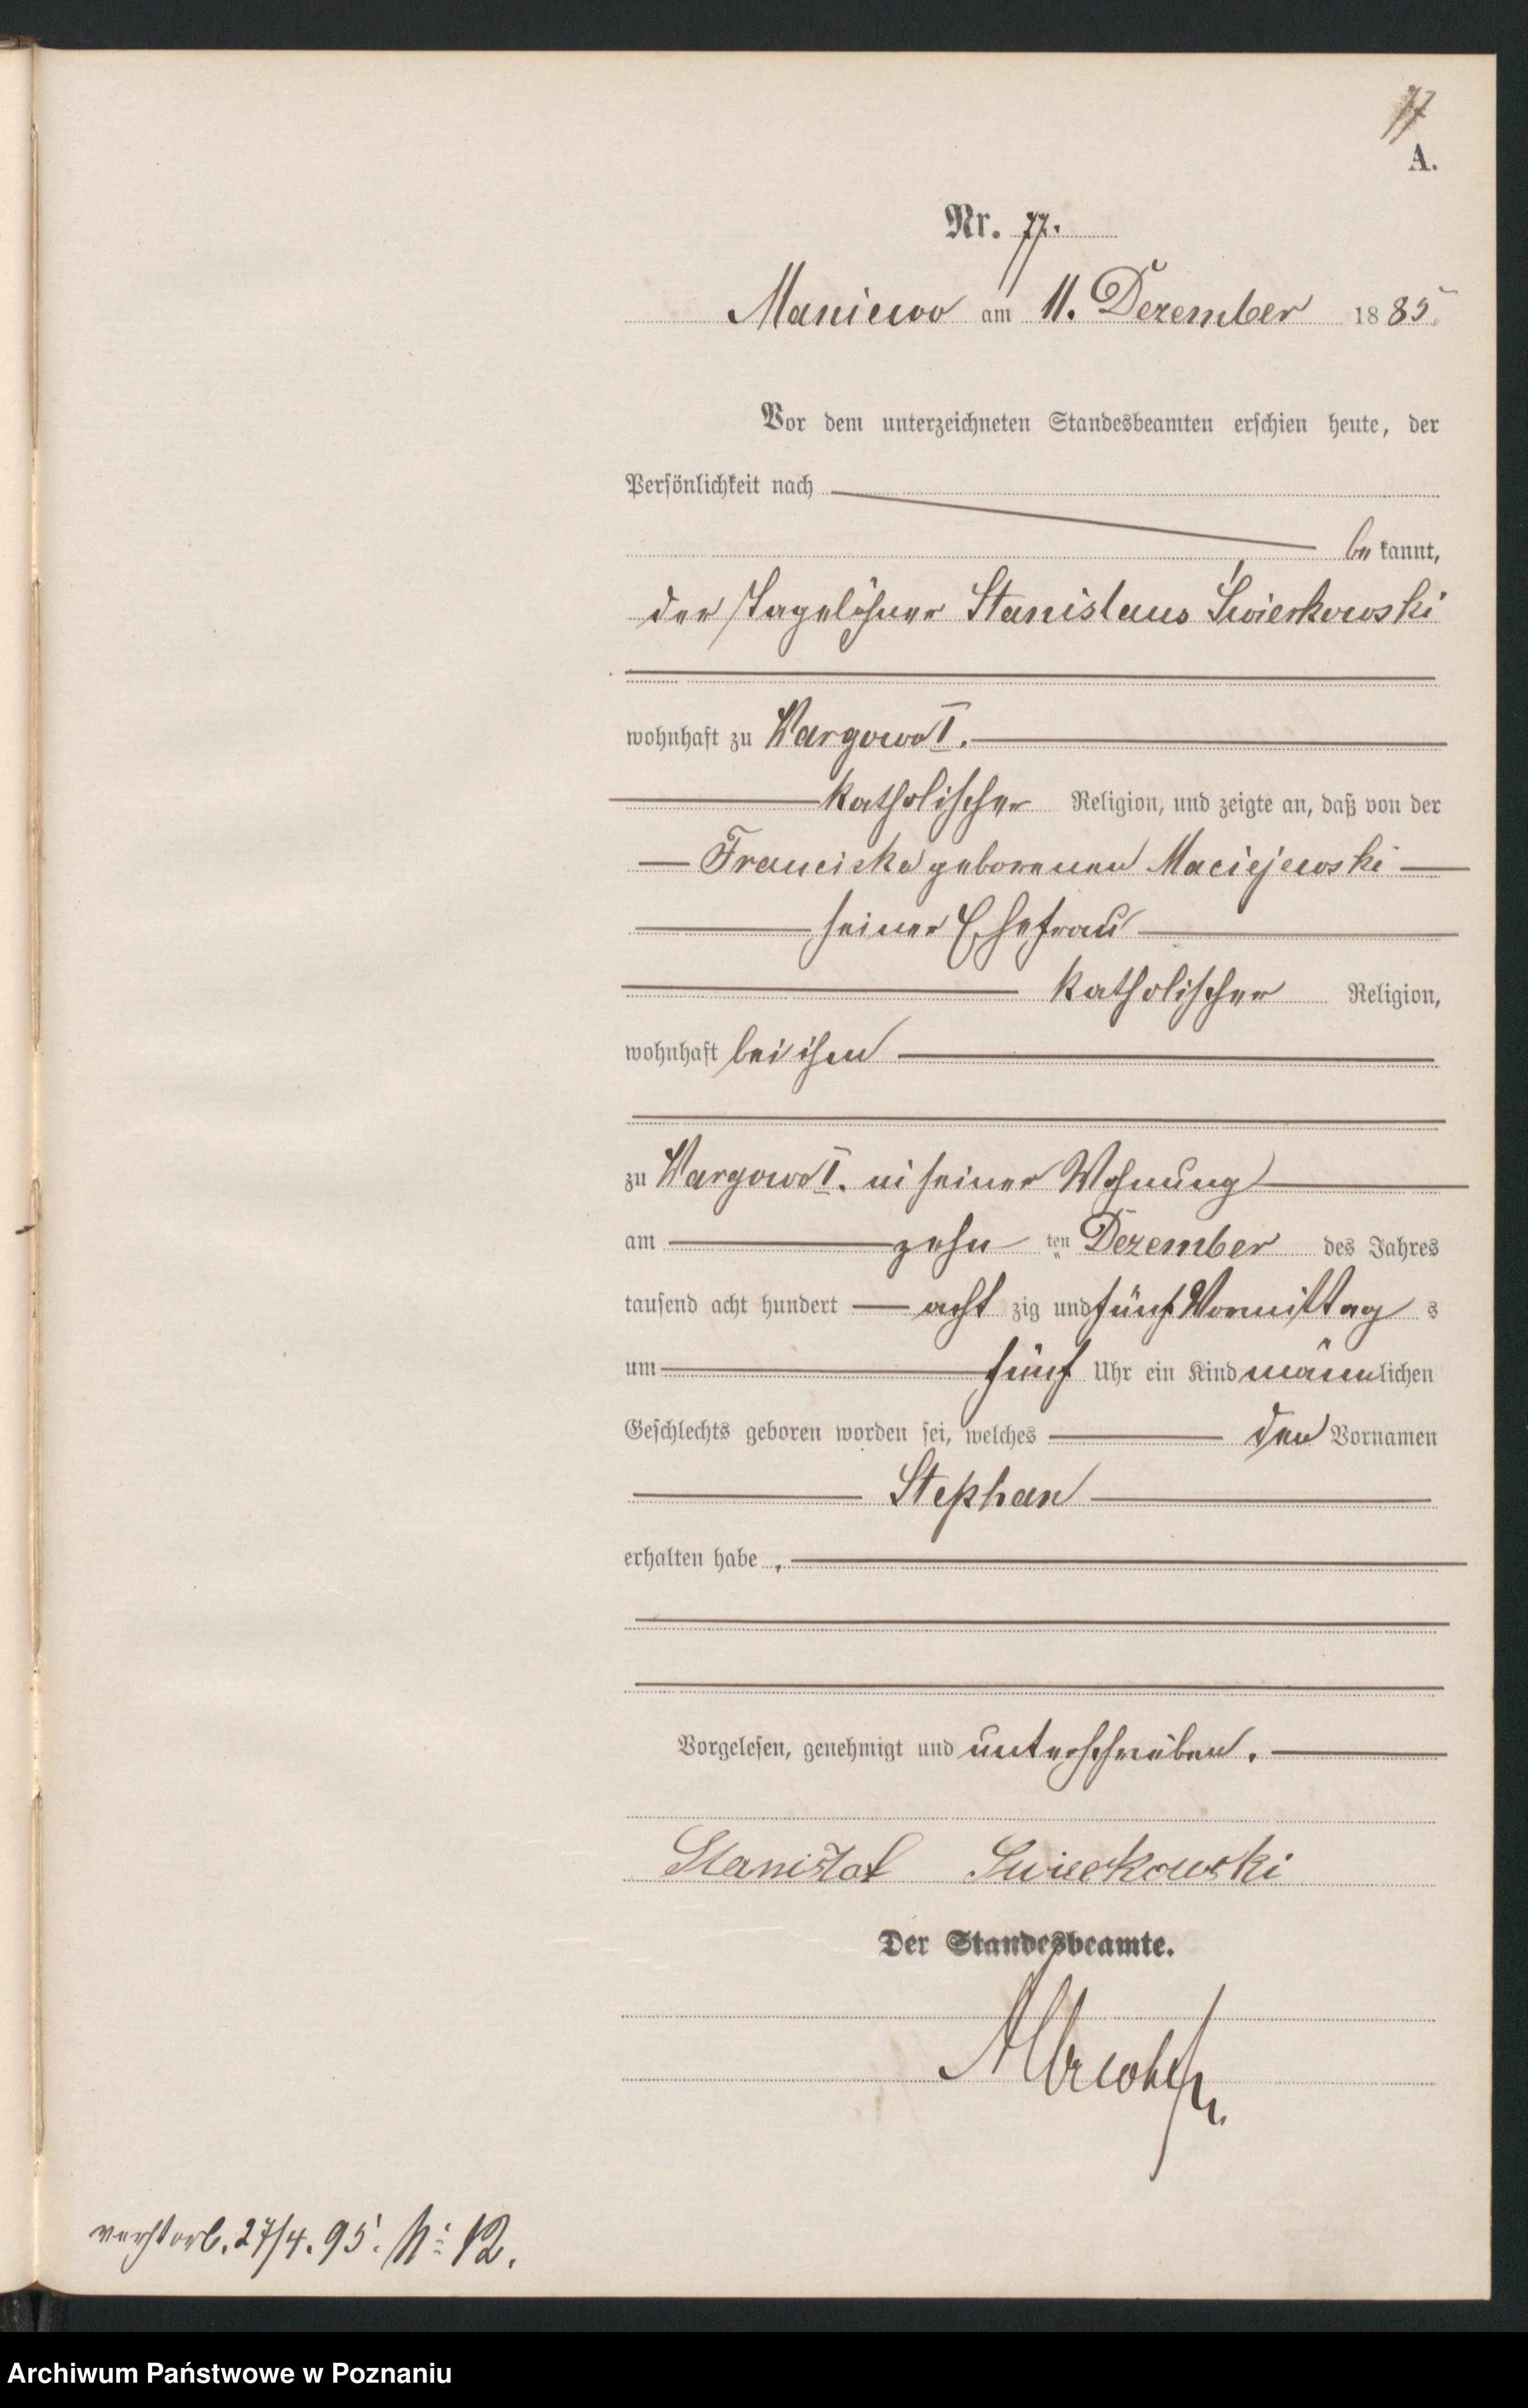 77
A.
Nr. 77.
Maniewo am 11. Dezember 1885.
Vor dem unterzeichneten Standesbeamten erschien heute, der
Persönlichkeit nach
be kannt,
der Tagelöhner Stanislaus Świerkowski
wohnhaft zu Wargowo I.
katholischer Religion, und zeigte an, daß von der
Franciska geborenen Maciejewski
seiner Ehefrau
katholischer Religion,
wohnhaft bei ihm
zu Wargowo I. in seiner Wohnung
am zehn ten Dezember des Jahres
tausend acht hundert acht zig und fünf Vormittag s
um fünf Uhr ein Kind männlichen
Geschlechts geboren worden sei, welches den Vornamen
Stephan
erhalten habe.
Vorgelesen, genehmigt und unterschrieben.
Stanisław Swierkowski
Der Standesbeamte.
verstorb. 27/4. 95. N: 12.
Archiwum Państwowe w Poznaniu